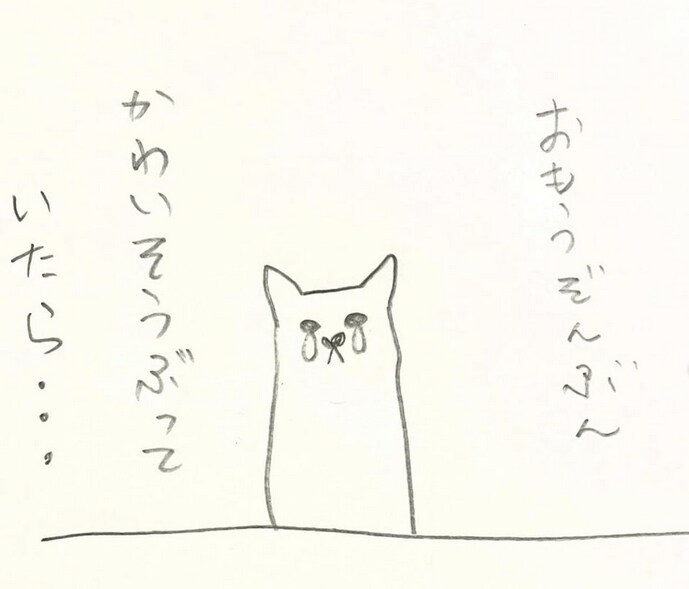 おもうぞんぶん
かわいそうぶって
いたら・・・